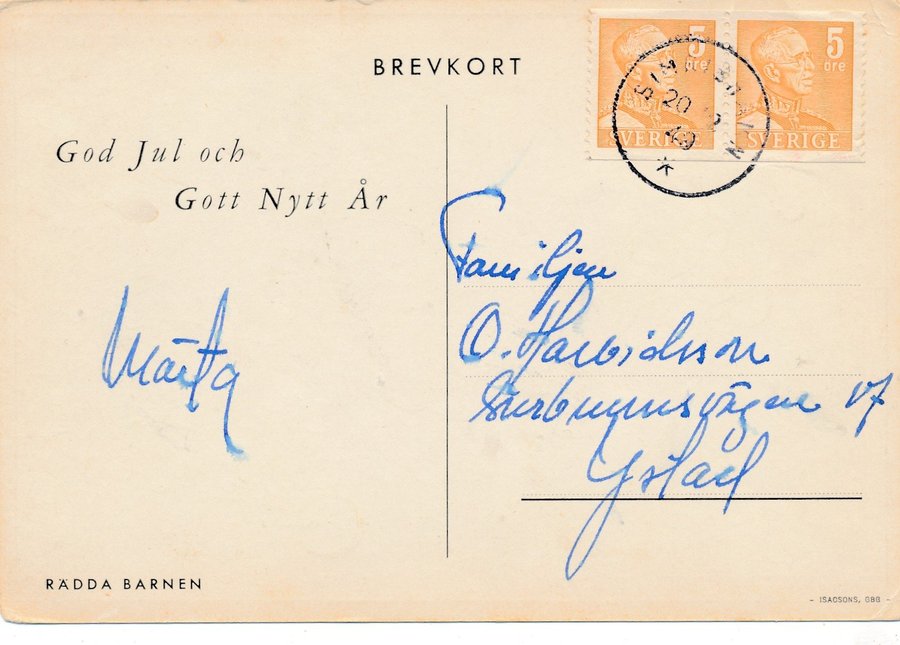 BREVKORT
5 öre
SVERIGE
5 öre
SVERIGE
20 12 49
God Jul och
Gott Nytt År
Märta
Familjen
O. Harvidsson
17
Ystad
RÄDDA BARNEN
- ISACSONS, GBG -